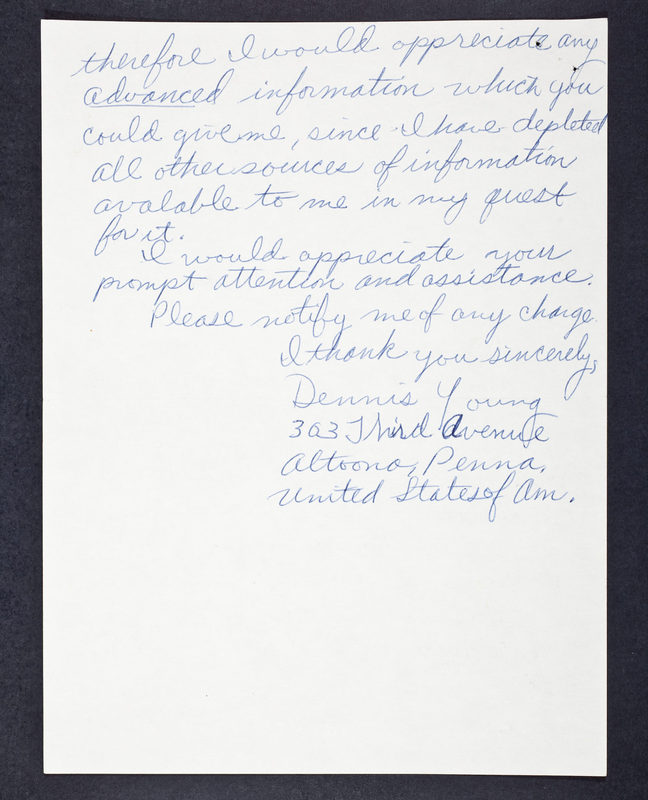 therefore I would appreciate any
advanced information which you
could give me, since I have depleted
all other sources of information
avalable to me in my quest
for it.
I would appreciate your
prompt attention and assistance.
Please notify me of any charge.
I thank you sincerely,
Dennis Young
303 Third Avenue
Altoona, Penna.
United States of Am.